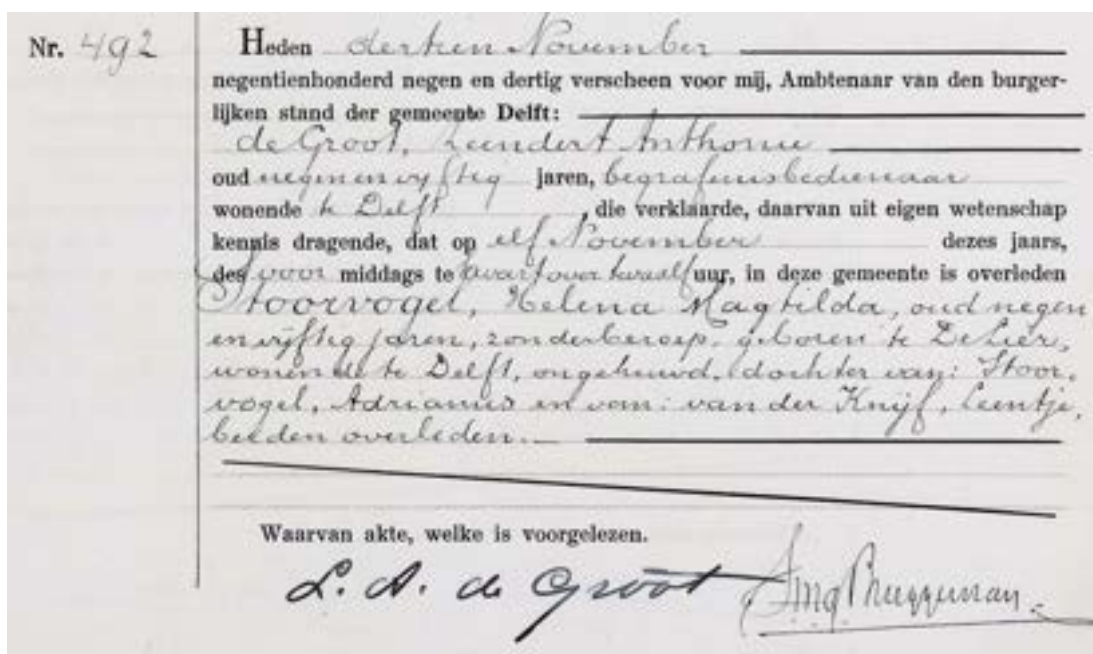 Nr. 492
Heden dertien November
negentienhonderd negen en dertig verscheen voor mij, Ambtenaar van den burger-
lijken stand der gemeente Delft:
de Groot, Leendert Anthonie
oud negenenvyftig jaren, begrafenisbedienaar
wonende te Delft, die verklaarde, daarvan uit eigen wetenschap
kennis dragende, dat op elf November dezes jaars,
des voor middags te kwart over twaalf uur, in deze gemeente is overleden
Stoorvogel, Helena Magtilda, oud negen
en vijftig jaren, zonder beroep, geboren te De Lier,
wonende te Delft, ongehuwd, dochter van: Stoor-
vogel, Adrianus en van: van der Knijf, Leentje,
beiden overleden.
Waarvan akte, welke is voorgelezen.
L. A. de Groot